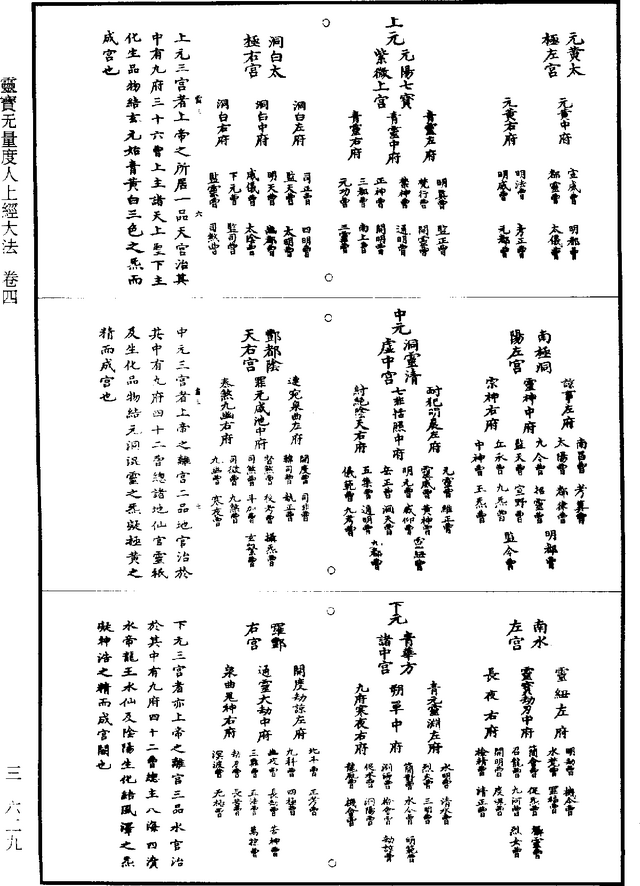 靈寶无量度人上經大法　卷四
三　六二九
元黃太
極左宮
元黃中府
元黃右府
宣威曹　明都曹
都靈曹　太儀曹
明法曹　考正曹
明威曹　元都曹
上元
元陽七寶
紫微上宮
青靈左府
青靈中府
青靈右府
明晨曹　監正曹
梵行曹　開靈曹
紫神曹　通明曹
正神曹　開明曹
三都曹　南上曹
元功曹　三靈曹
洞白太
極右宮
洞白左府
洞白中府
洞白右府
司正曹　四明曹
監天曹　太明曹
明天曹　幽都曹
威儀曹　太陰曹
下元曹　監司曹
監靈曹　司煞曹
上元三宮者上帝之所居一品天宮治其
中有九府三十六曹上主諸天上聖下主
化生品物結玄元始青黃白三色之炁而
成宮也
南極洞
陽左宮
誼事左府
靈神中府
宗神右府
南昌曹　考算曹
太陽曹　都律曹
九令曹　招靈曹　明都曹
監天曹　宣野曹
丘承曹　九炁曹　監令曹
中神曹　玉炁曹
中元
洞靈清
虛中宮
耐犯明晨左府
七非恬照中府
紂絕陰天右府
元靈曹　維正曹
靈威曹　黃神曹
明元曹　威仰曹
岳正曹　洞天曹
五蘂曹　道明曹　九都曹
儀範曹　九考曹
酆都陰
天右宮
連宛泉曲左府
罪元咸池中府
泰煞九幽右府
開度曹　司非曹
韓司曹　執正曹
督煞曹　校考曹　攝炁曹
司煞曹　斗加曹　玄擊曹
司徵曹　九煞曹
九幽曹　寒夜曹
中元三宮者上帝之離宮二品地官治於
其中有九府四十二曹總諸地仙官靈祇
及生化品物結元洞混靈之炁凝極黃之
精而成宮也
南水
左宮
靈紐左府
靈寶劫刃中府
長夜右府
明劫曹　機令曹
水梵曹　罪福曹
簡會曹　促炁曹　攝靈曹
召龍曹　九河曹　烈女曹
開明曹　度順曹
栓精曹　清正曹
下元
青華方
諸中宮
青元靈淵左府
朔單中府
九府寒夜右府
水明曹　清水曹
烈天曹　三明曹
簡對曹　水令曹　明範曹
洞源曹　栓會曹　劫諒曹
促水曹　洞陽曹
龍威曹　機會曹
羅酆
右宮
開度劫諒左府
通靈大劫中府
泉曲鬼神右府
北斗曹　正考曹
九科曹　四極曹
幽攻曹　長劫曹　苦神曹
三舞曹　上法曹　萬控曹
劫刃曹　長靈曹
溟波曹　无極曹
下元三宮者亦上帝之離宮三品水官治
於其中有九府四十二曹總主八海四瀆
水帝龍王水仙及陰陽生化結風澤之炁
凝神浩之精而成宮闕也